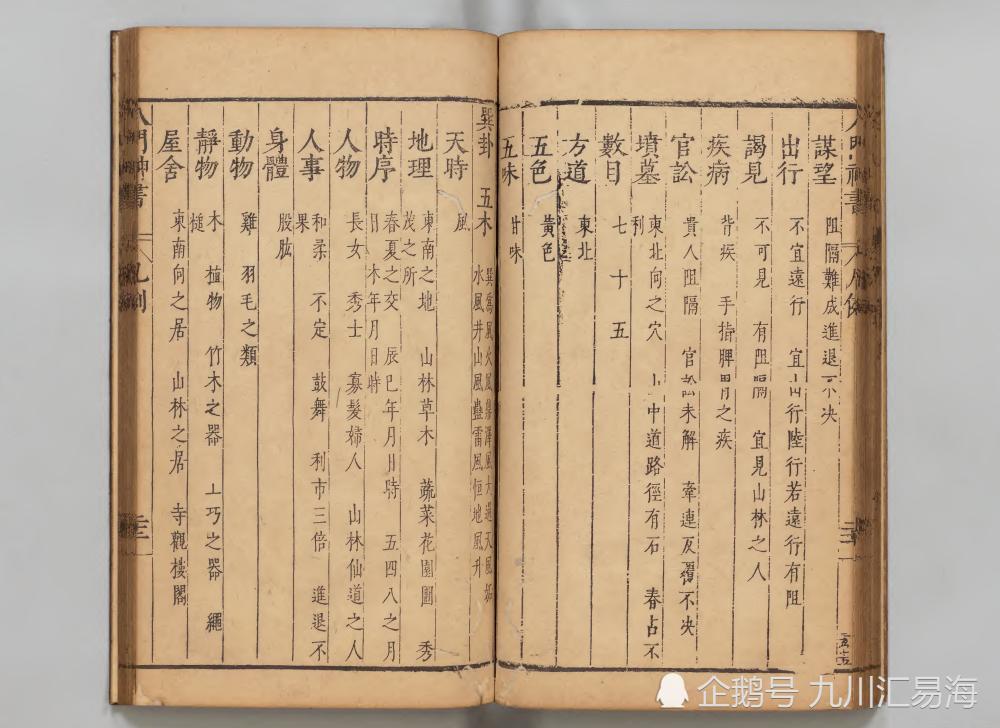 八門神書
謀望 阻隔難成進退不決
出行 不宜遠行 宜山行陸行若遠行有阻
謁見 不可見 有阻隔 宜見山林之人
疾病 背疾 手指脾胃之疾
官訟 貴人阻隔 官訟未解 牽連反覆不決
墳墓 東北向之穴 山中道路徑有石 春占不
利
數目 七十五
方道 東北
五色 黃色
五味 甘味
巽卦 五木 巽為風火風鼎澤風大過天風姤
水風井山風蠱雷風恒地風升
天時 風
地理 東南之地 山林草木 蔬菜花園圃 秀
茂之所
時序 春夏之交 辰巳年月日時 五四八之月
日 木年月日時
人物 長女 秀士 寡髮婦人 山林仙道之人
人事 和柔 不定 鼓舞 利市三倍 進退不
果
身體 股肱
動物 雞 羽毛之類
靜物 木 植物 竹木之器 工巧之器 繩
槌
屋舍 東南向之居 山林之居 寺觀樓閣
八門神書
企鹅号 九川汇易海